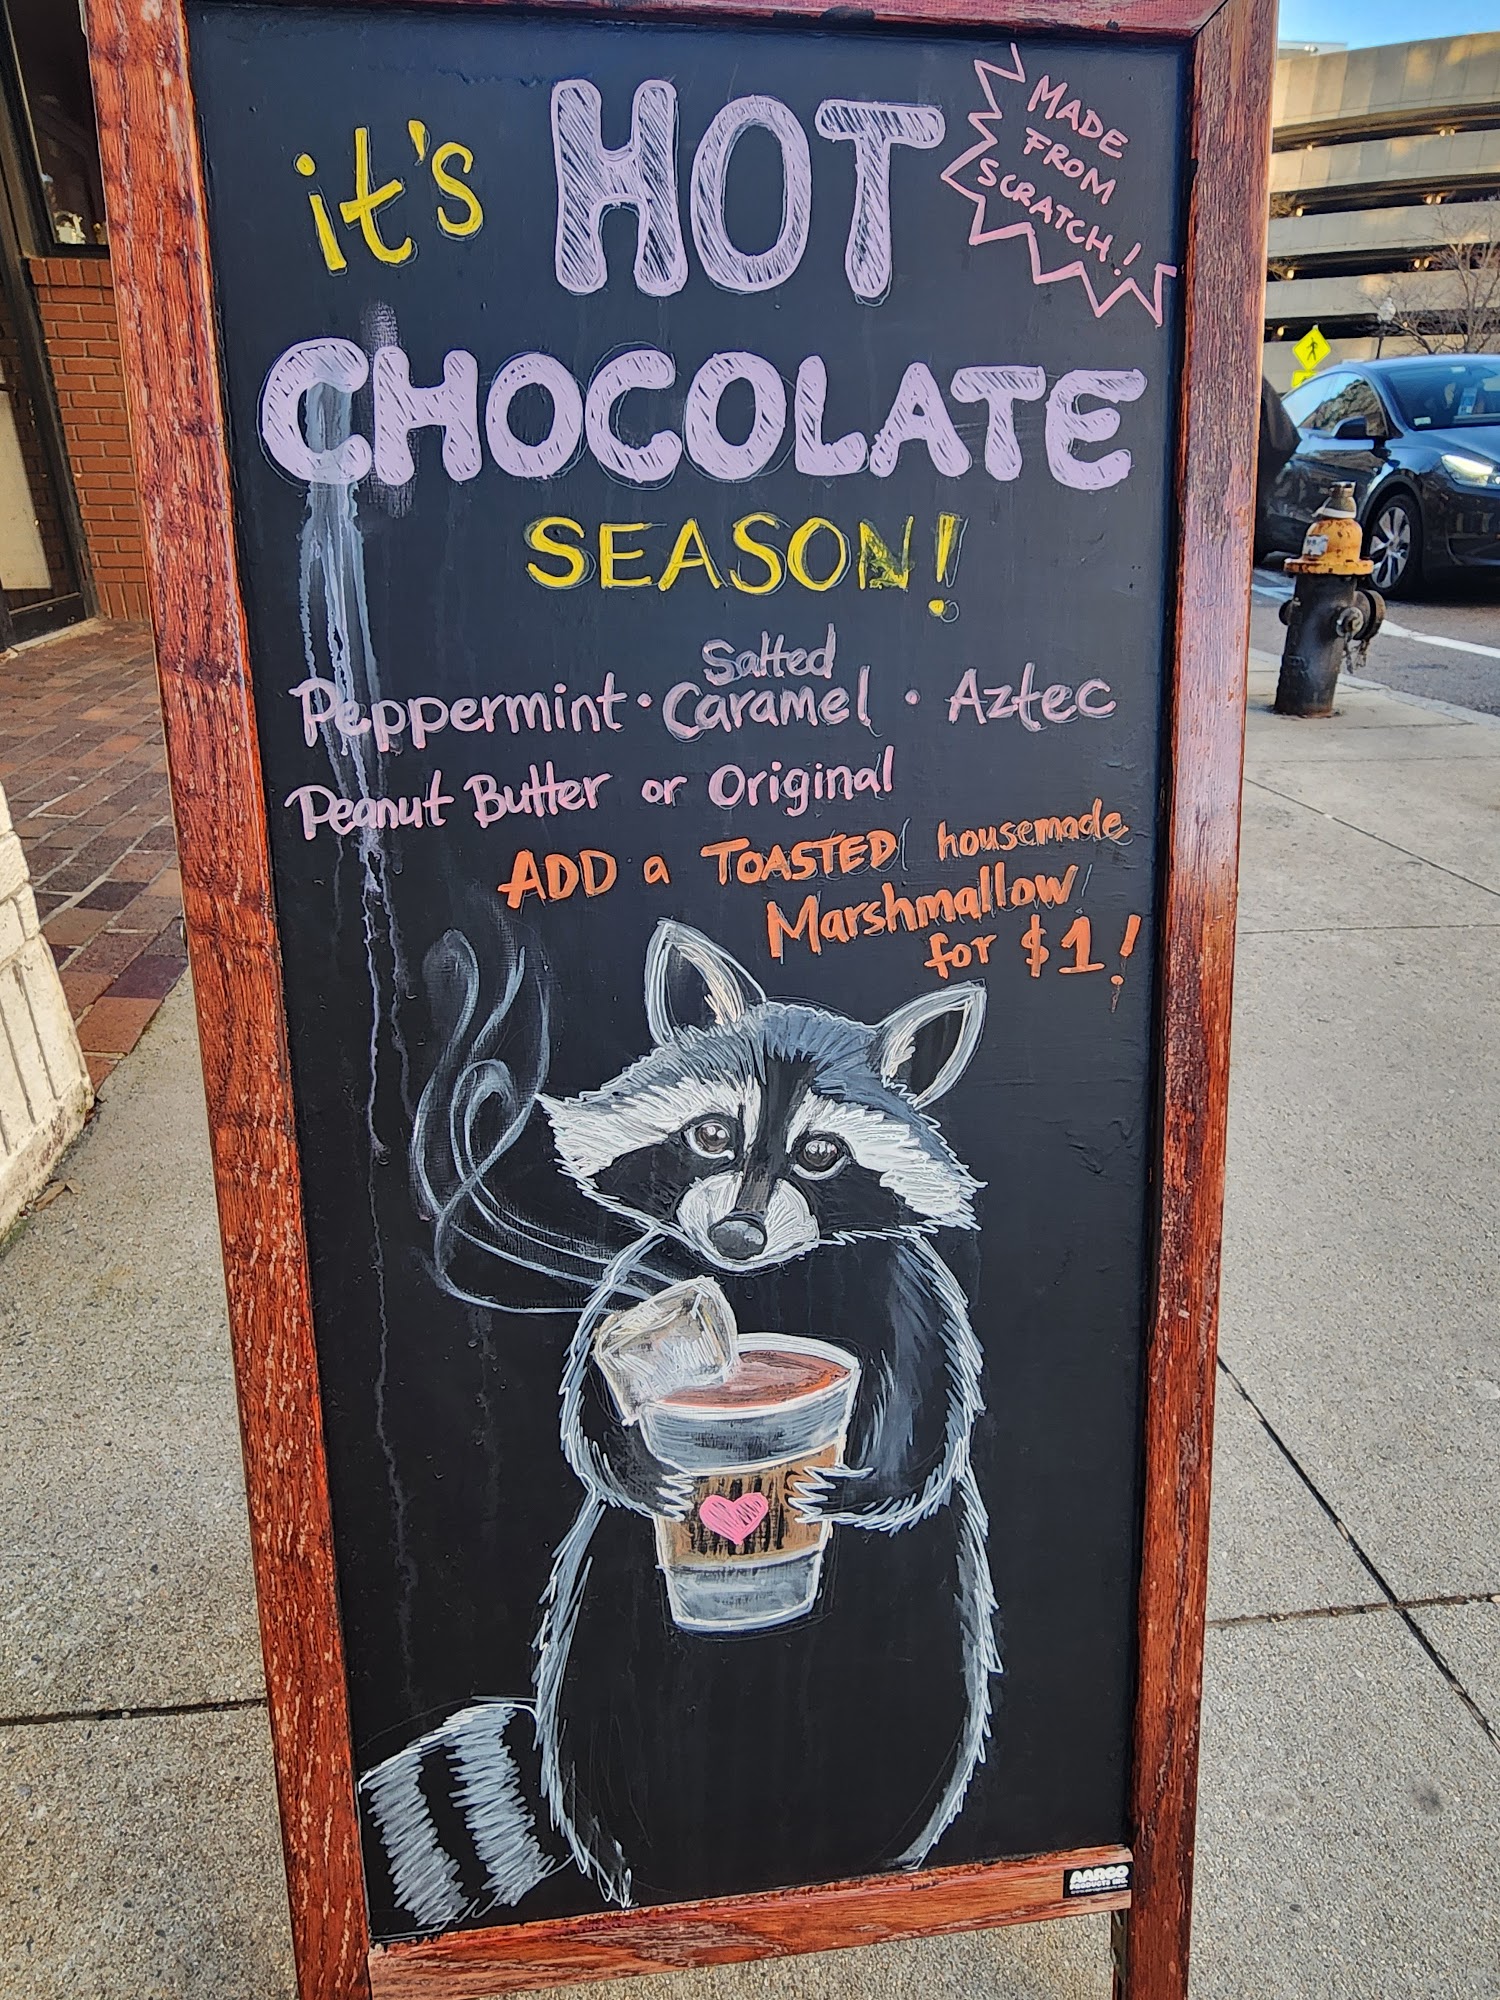 it's HOT
MADE
FROM
SCRATCH!
CHOCOLATE
SEASON!
Salted
Peppermint · Caramel · Aztec
Peanut Butter or Original
ADD a TOASTED housemade
Marshmallow
for $1!
AARCO
PRODUCTS INC.